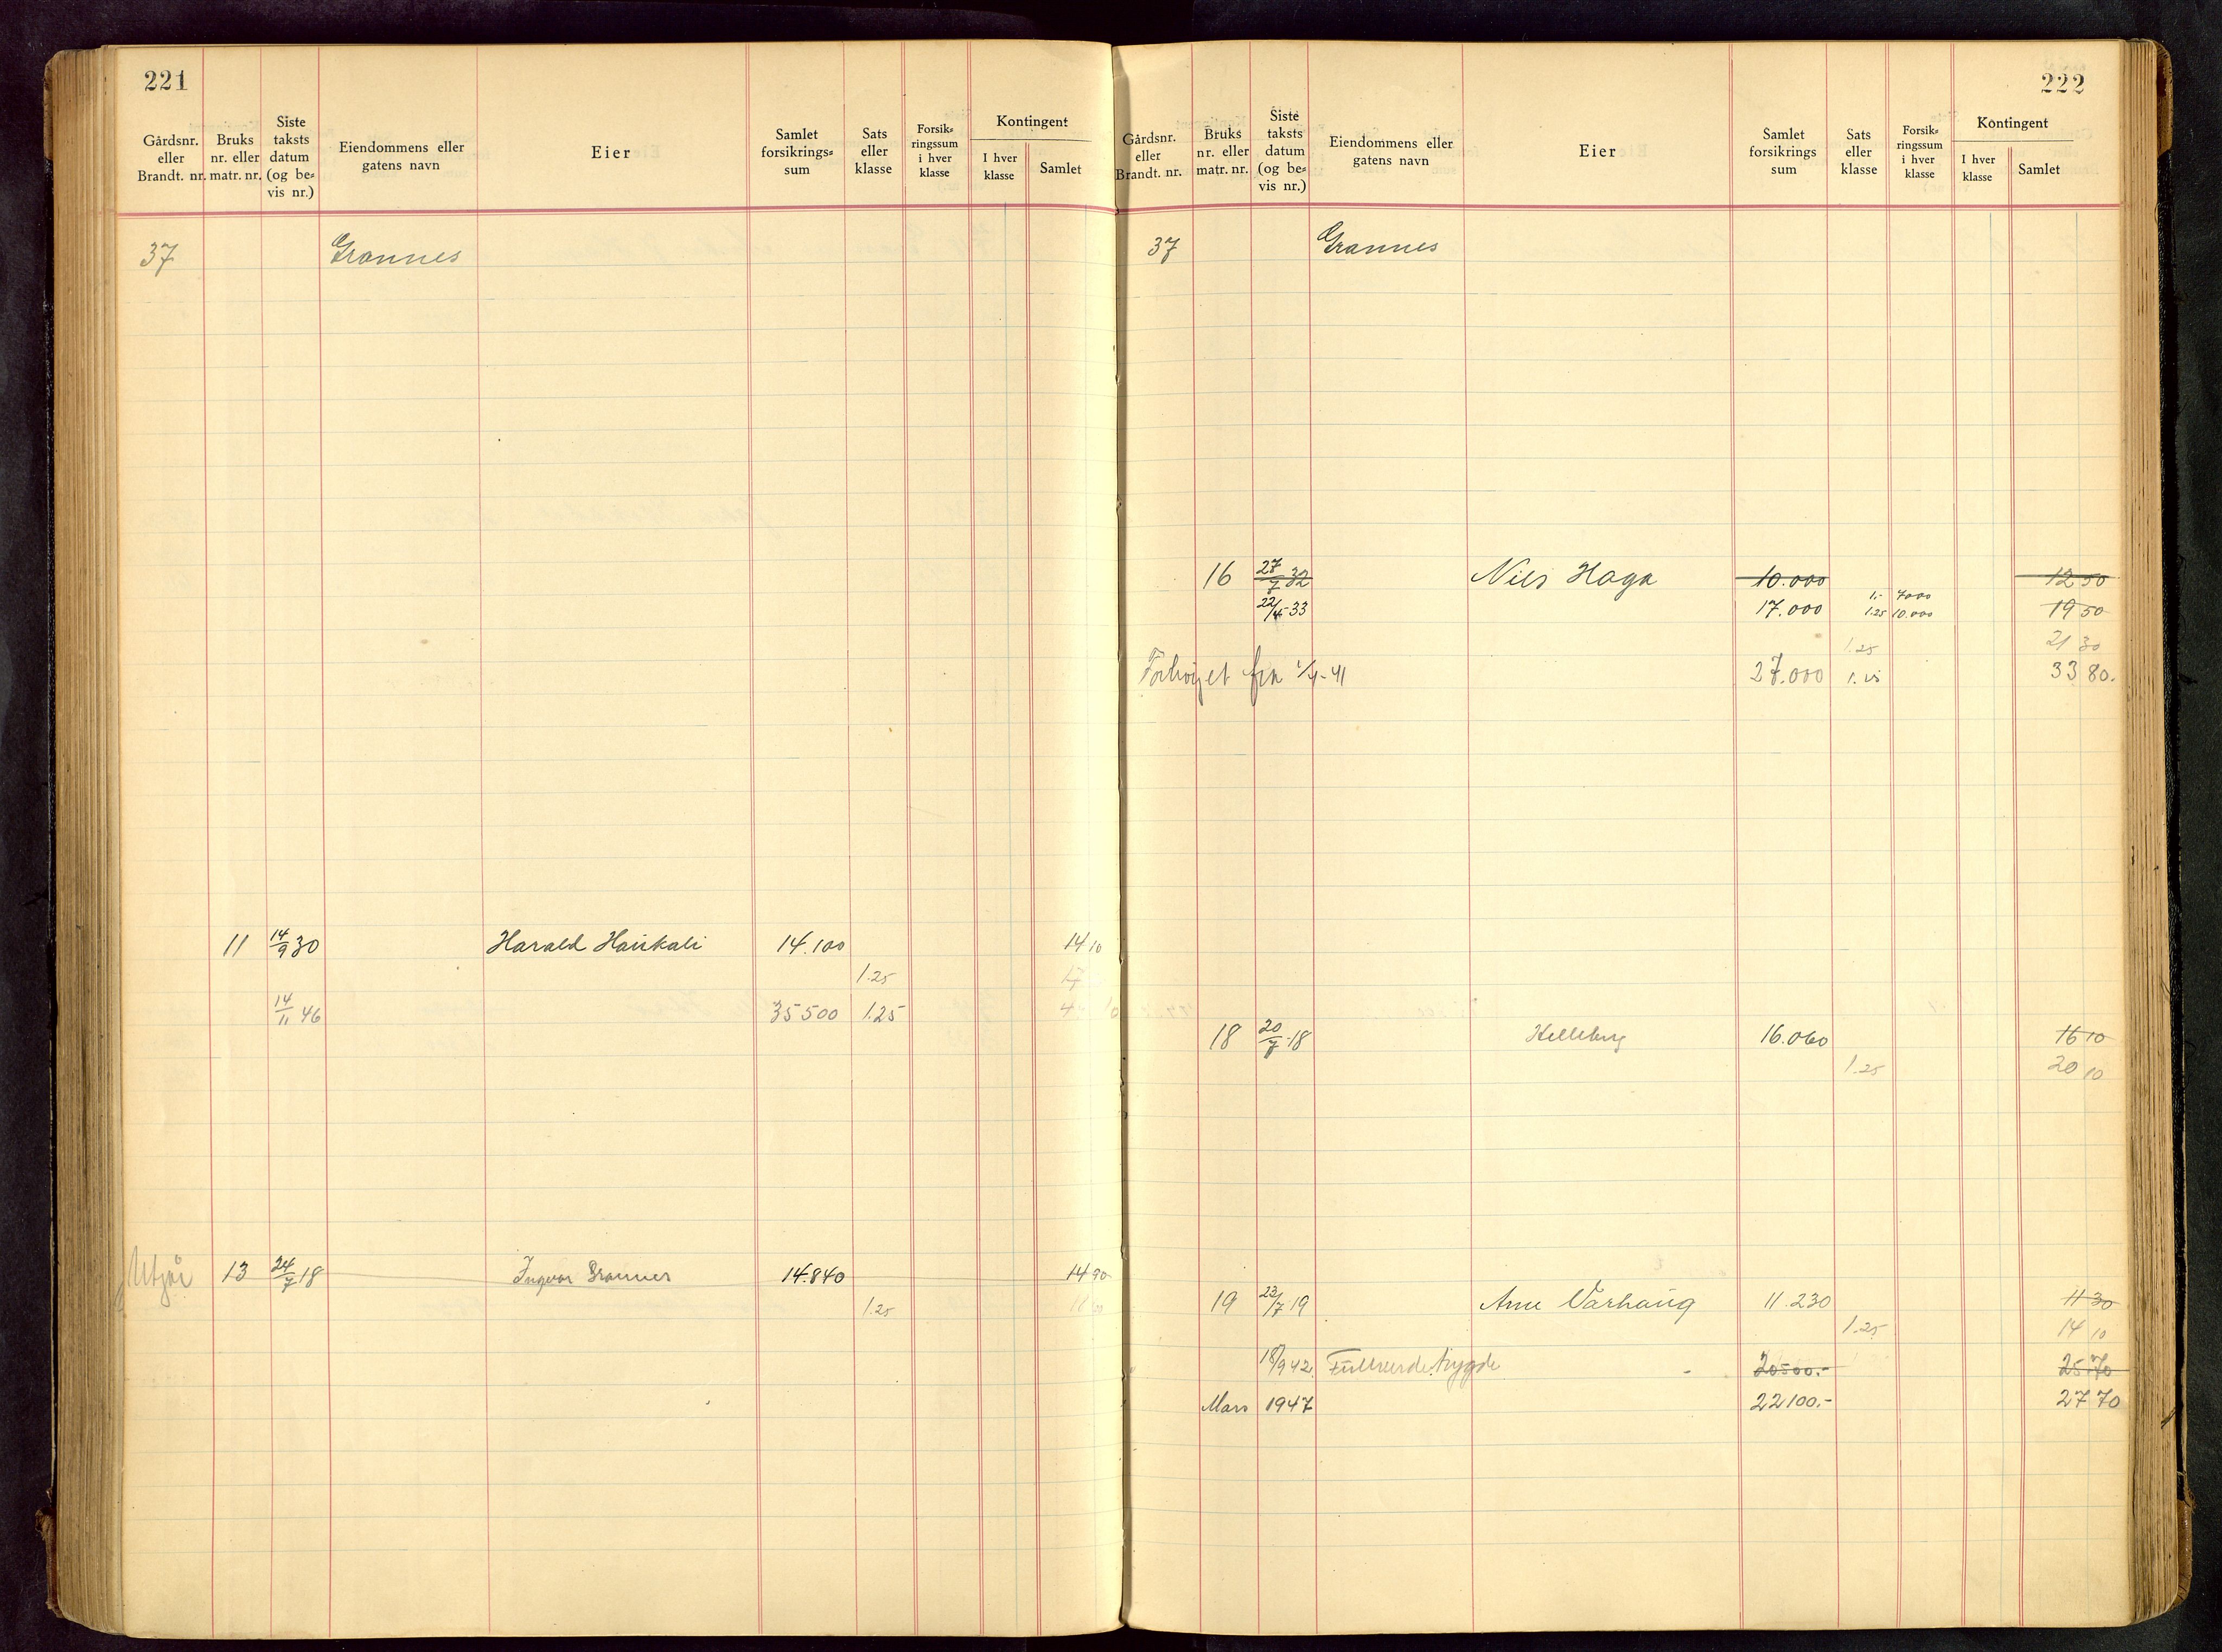 221
Gårdsnr. eller Brandt. nr. Bruks nr. eller matr. nr. Siste taksts datum (og bevis nr.) Eiendommens eller gatens navn Eier Samlet forsikrings=sum Sats eller klasse Forsik=ringssum i hver klasse Kontingent I hver klasse Samlet
37 Grannes
11 14/9 30 Harald Hauskali 14.100 14 10
1.25 17
14/11 46 35500 1.25
13 24/7 18 Ingvar Grannes 14.840 14 90
1.25
222
Gårdsnr. eller Brandt. nr. Bruks nr. eller matr. nr. Siste taksts datum (og be=vis nr.) Eiendommens eller gatens navn Eier Samlet forsikrings sum Sats eller klasse Forsik=ringssum i hver klasse Kontingent I hver klasse Samlet
37 Grannes
16 27/7 32 Nils Haga 10.000 12 50
1.- 7000
22/4-33 17.000 1.25 10.000 19 50
1.25 21 30
Forhøyet fra 1/4-41 27.000 1.25 33 80.
18 20/7-18 Helleberg 16.060 16 10
1.25 20 10
19 22/7 19 Arne Varhaug 11.230 11 30
1.25 14 10
18/9 42. Fullverdetrygde - 20500.- 25.70
Mars 1947 22100.- 27 70